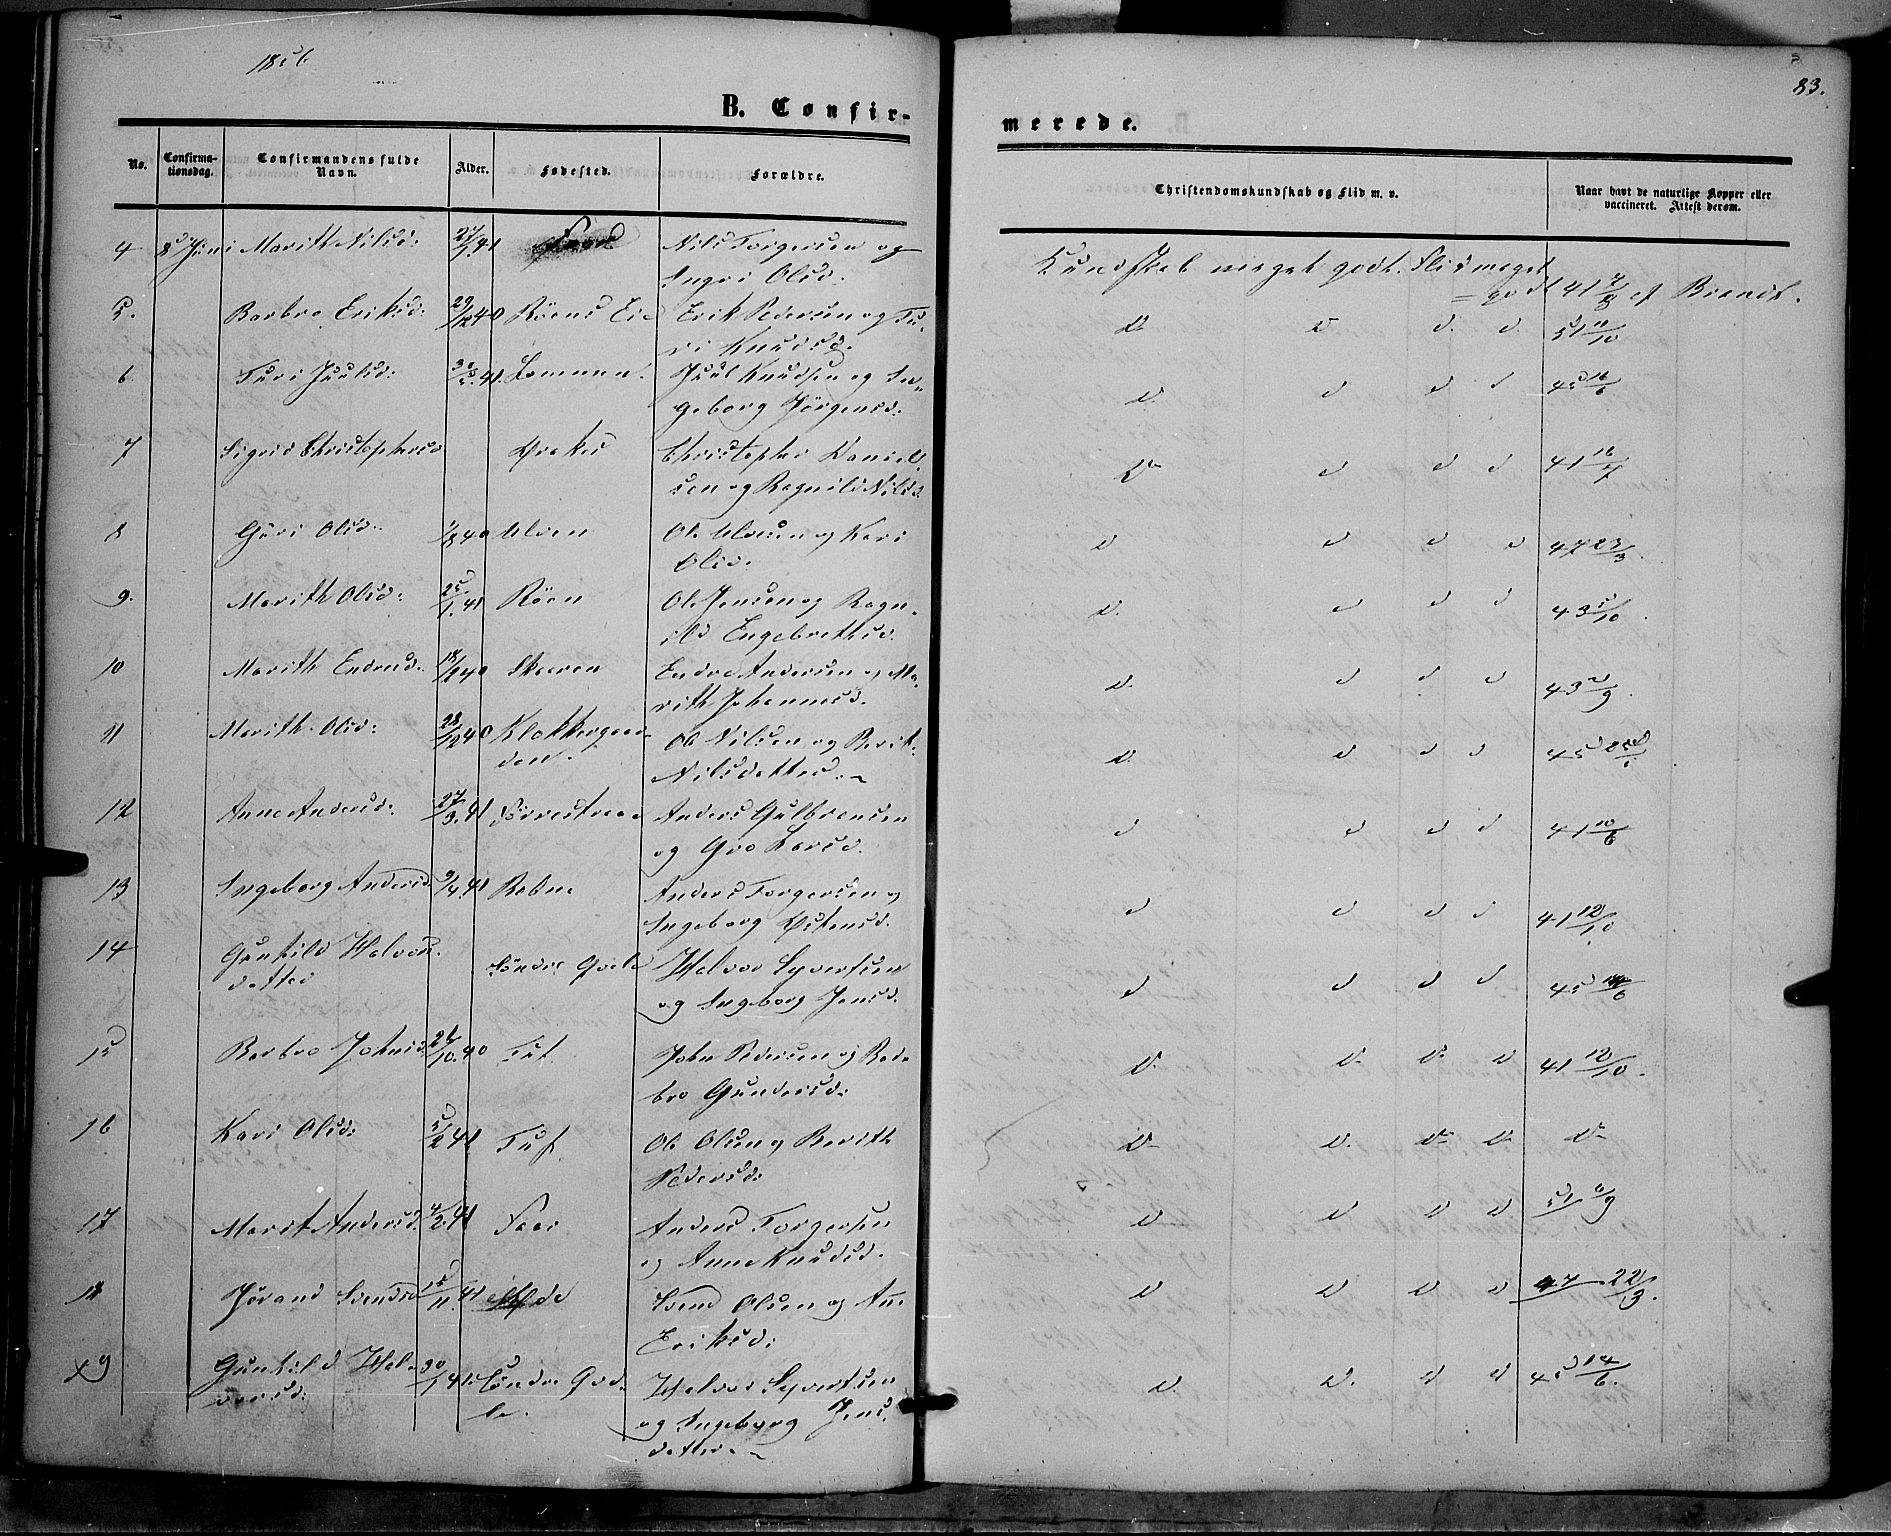 1856
83.
B. Confir-
merede.
No.
Confirma-
tionsdag.
Confirmandens fulde
Navn.
Alder.
Fødested.
Forældre.
Christendomskundskab og Flid m. v.
Naar havt de naturlige Kopper eller
vaccineret. Attest derom.
4 8d Juni Marith Nilsd: 27/7.41 Nils Torgersen og
Ingri Olsd.
Kundskab meget godt. Flid meget
godt 41 7/8 af Brandt.
5. Barbro Eriksd: 29/12 40 Röens Eie Erik Pedersen og Tu-
ri Knudsd.
D. D d. d. 51 11/10
6 Turi Juulsd: 30/5.41. Lommen. Juul Knudsen og In-
geborg Jörgensd.
D. d d d 45 16/6
7 Sigrid Christophersd Christopher Daniel-
sen og Ragnild Nilsd.
D d d d 41 16/7
8 Guri Olsd. 1/8 40 Ulven Ole Ulvesen og Kari
Olsd.
D d d d 47 23/3.
9. Marith Olsd: 25/1.41 Röen Ole Jensen og Ragn-
ild Engebrethsd.
D. d d d 43 5/10.
10 Marith Endresd. 18/12 40 Skaren Endre Andersen og Ma-
rith Johannesd.
D. d d d 43 5/9.
11 Marith Olsd: 28/12 40 Klokkergaar-
den. Ole Nilsen og Berit
Nilsdatter.
D. d d d 45
12 Anne Andersd: 27/3.41 Anders Gulbrensen
og Gro Larsd.
d d d d 41 10/6
13 Ingeborg Andersd. 9/4.41 Rebne Anders Torgersen og
Ingeborg Østensd.
d d d d 41 12/10.
14 Gunhild Halvors-
datter Söndre Qvale Halvor Syvertsen
og Ingeborg Jensd.
d d d d 45 14/6
15 Barbro Johnsd: 26/10.40 Tuf John Pedersen og Bar-
bro Gundersd:
D. D. D. D 41 12/10.
16 Kari Olsd: 5/2 41 Tuf Ole Olsen og Berith
Pedersd:
D D. D D D
17 Marit Andersd. 4/2.41 Anders Torgersen
og Anne Knudsd.
D D D D 51 11/9
18 Jörand Svendsd 15/11.41 Svend Olsen og Ane
Eriksd:
D D D D 47 22/3.
19 Gunhild Hal-
vorsd: 30/1.41 Söndre Qva-
le. Halvor Syvertsen
og Ingeborg Jens-
datter.
D. D. d d 45 14/6.